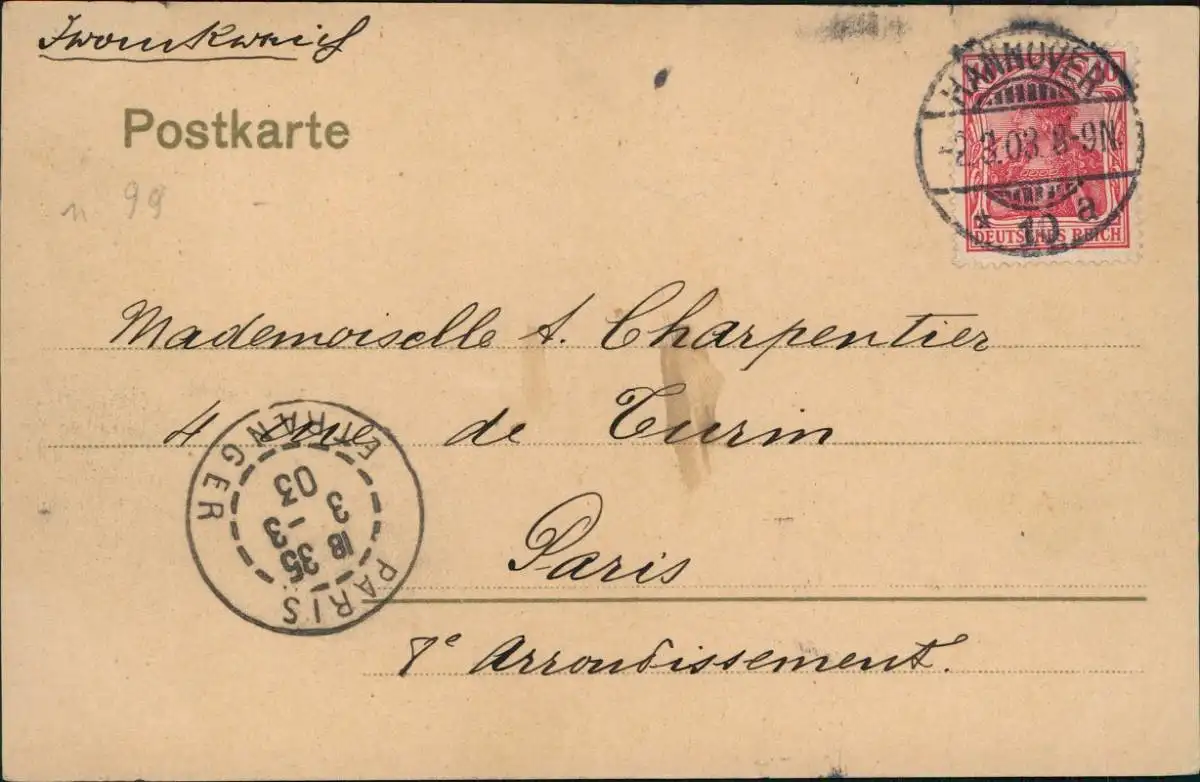 Postkarte
HANNOVER
2.3.03 8-9N.
* 10 a
DEUTSCHES REICH
n 99
Mademoiselle A. Charpentier
4 rue de Turin
Paris
8e Arrondissement.
PARIS ETRANGER
3 53
18 3
03